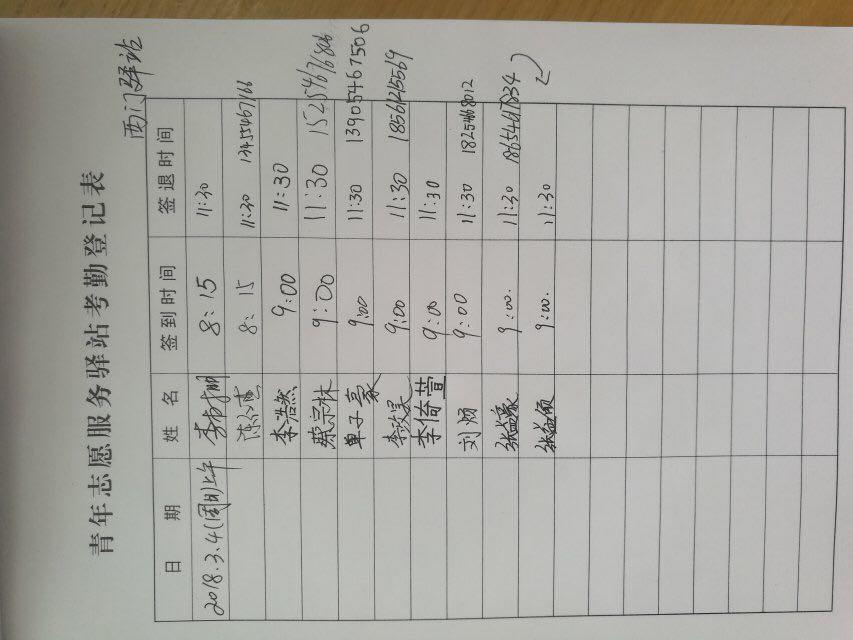 西门驿站
青年志愿服务驿站考勤登记表
日 期 姓 名 签到时间 签退时间
2018.3.4(周日)上午 8:15 11:30
8:15 11:30 13455467166
李浩然 9:00 11:30
蔡宗林 9:00 11:30 15254676806
单子豪 9:00 11:30 13905467506
9:00 11:30 18561215569
李倚萱 9:00 11:30
刘炳 9:00 11:30 18254688012
张益豪 9:00. 11:30 1865467834
张益硕 9:00. 11:30